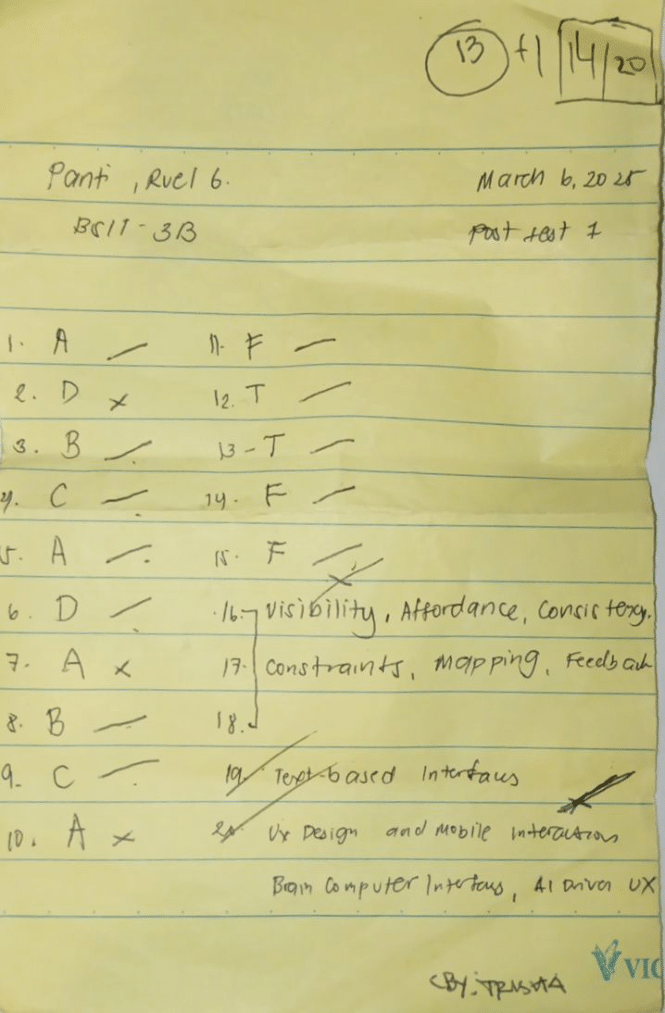 13 +1 14/20
Panti, Ruel G. March 6, 2025
BSIT - 3B Post test 1
1. A 11. F
2. D x 12. T
3. B 13 - T
4. C 14. F
5. A 15. F
6. D 16. Visibility, Affordance, Consistency.
7. A x 17. Constraints, Mapping, Feedback
8. B 18.
9. C 19. Text-based Interfaces
10. A x 20. Ux Design and Mobile Interactions
Brain Computer Interfaces, AI Driven UX
VIC
BY: TRISHA